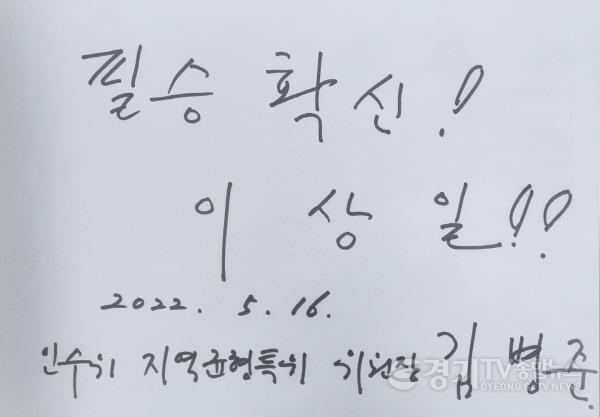 필승 확신!
이 상 일!!
2022. 5. 16.
인수위 지역균형특위 위원장 김 병 준.
경기TV종합뉴스
GYEONG GI TV NEWS